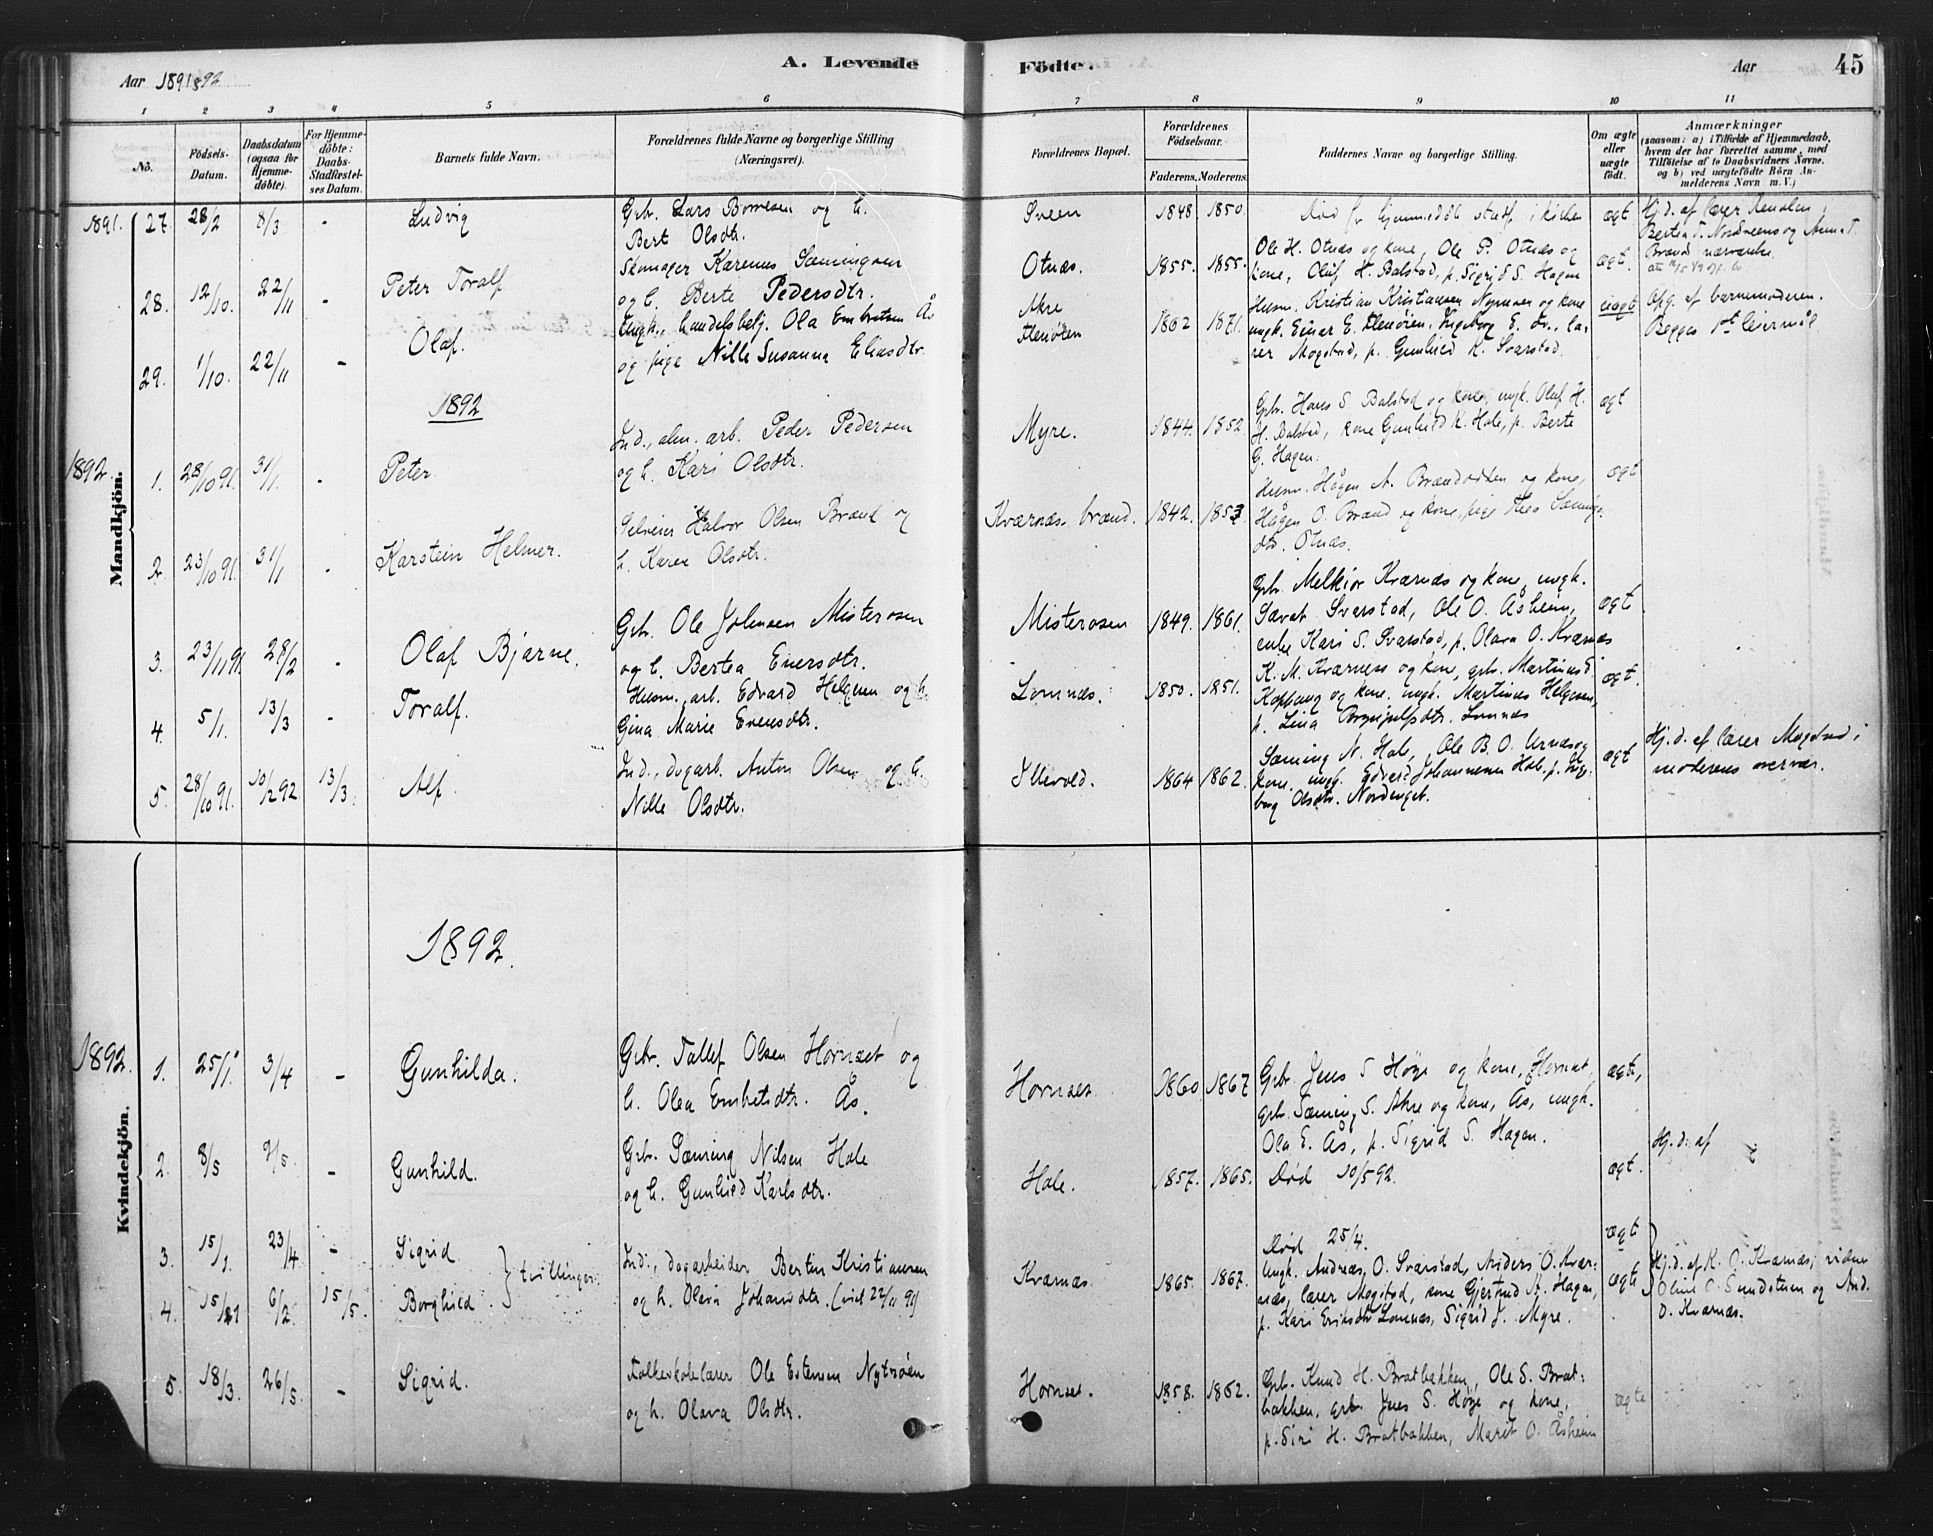 Aar 1891 & 92
A. Levende
Födte.
Aar
45
1 2 3 4 5 6 7 8 9 10 11
No.
Födsels-Datum.
Daabsdatum (ogsaa for Hjemmedöbte).
For Hjemmedöbte: Daabs-Stadfæstelses Datum.
Barnets fulde Navn.
Forældrenes fulde Navne og borgerlige Stilling (Næringsvei).
Forældrenes Bopæl.
Forældrenes Födselsaar.
Faderens. Moderens.
Faddernes Navne og borgerlige Stilling.
Om ægte eller uægte födt.
Anmærkninger
(saasom: a) i Tilfælde af Hjemmedaab, hvem der har forrettet samme, med Tilföielse af to Daabsvidners Navne, og b) ved uægtefödte Börn Anmelderens Navn m. V.)
Mandkjön.
1891. 27. 28/2 8/3 - Ludvig
Gbr. Lars og h.
Bert Olsdtr.
Sveen 1848 1850.
ægt
Hj. d. af lærer
28. 12/10. 22/11 - Peter Toralf
Skomager Karenus Sæmingsen
og h. Berte Pedersdtr.
Otnæs. 1855. 1855.
Ole H. Otnæs og kone, Ole P. Otnæs og
kone, Oluf H. Balstad, p. Sigrid S. Hagen
ægt.
29. 1/10. 22/11 - Olaf.
Ungk., handelsbetj. Ola Embretsen Ås
og pige Nille Susanna Eliasdtr.
Akre
1862 1871.
Husm. Kristian Kristiansen og kone
ungk. Einar E.
rer Mogstad, p. Gunhild K. Svarstad.
uægt
Opg. af barnemoderen.
Begges 1ste leiermål
1892
1892. 1. 28/10 91. 31/1. - Peter.
Ind., alm. arb. Peder Pedersen
og h. Kari Olsdtr.
Myre. 1844. 1852.
Gbr. Hans S. Balstad og kone, ungk. Oluf H.
H. Balstad, kone Gunhild K. Hole, p. Berte
G. Hagen.
ægt
2. 23/10 91. 31/1 - Karstein Helmer.
Selveier Halvor Olsen Brænd og
h. Karen Olsdtr.
Kværnæs brænd. 1842. 1853.
Husm. Hågen A. Brændvolden og kone,
Hågen O. Brænd og kone, pige
dtr. Otnæs.
ægt
3. 23/11 91. 28/2 - Olaf Bjarne.
Gbr. Ole Johnsen Misterosen
og h. Bertea Eversdtr.
Misterosen 1849. 1861.
Gbr. Melkior Kværnæs og kone, ungk.
Sævat Svarstad, Ole O. Åsheim,
enke Kari S. Svarstad, p. Olava O. Kværnæs
ægt
4. 5/1. 13/3 - Toralf.
Husm., arb. Edvard Helgesen og h.
Gina Marie Evensdtr.
Lomnæs. 1850. 1851.
K. M. Kværness og kone, gbr. Martinus E.
Koppang og kone, ungk. Martinus Helgesen,
p. Lina Brynjulfsdtr. Lomnæs
ægt.
5. 28/10 91. 10/2 92. 13/3. Alf.
Ind., dagarb. Anton Olsen og h.
Nille Olsdtr.
Illevold. 1864 1862.
Sæming N. Hole, Ole B. O. Urnæs og
kone, ungk. Edvard Johannesen Hole, p. Inge-
borg Olsdtr. Nordenget.
ægt
Hj. d. af lærer Mogstad i
moderens overvær.
Kvindekjön.
1892.
1892. 1. 25/1. 3/4 - Gunhilda.
Gbr. Tallef Olsen Hornset og
h. Olea Embretsdtr. Ås.
Hornset 1860 1867
Gbr. Jens S. Høye og kone, Hornset,
gbr. Sæming S. Akre og kone, Ås, ungk.
Ola E. Ås, p. Sigrid S. Hagen.
ægt,
2. 8/5 9/5. - Gunhild.
Gbr. Sæming Nilsen Hole
og h. Gunhild Karlsdtr.
Hole. 1857. 1865.
Død 10/5 92.
ægt.
Hj. d. af
3. 15/1 23/4 - Sigrid
4. 15/1 6/2. 15/5. Borghild
tvillinger.
Ind., dagarbeider Bertin Kristiansen
og h. Olava Johansdtr. (viet 22/11 91)
Kværnæs 1865. 1867.
Død 25/4.
Ungk. Andreas O. Svarstad, Anders O. Kvær-
næs, lærer Mogstad, kone Gjertrud A. Hagen,
p. Kari Eriksdtr Lomnæs, Sigrid J. Myre.
ægt
ægte
Hj. d. af K. O. Kværnæs; vidner
Oline O. Sundstuen og And.
O. Kværnæs.
5. 18/3. 26/5 - Sigrid.
Folkeskolelærer Ole Estensen Nytrøen
og h. Olava Olsdtr.
Hornset. 1858. 1862.
Gbr. Knud H. Bratbakken, Ole S. Brat-
bakken, gbr. Jens S. Høye og kone,
p. Siri H. Bratbakken, Marit O. Åsheim
ægte